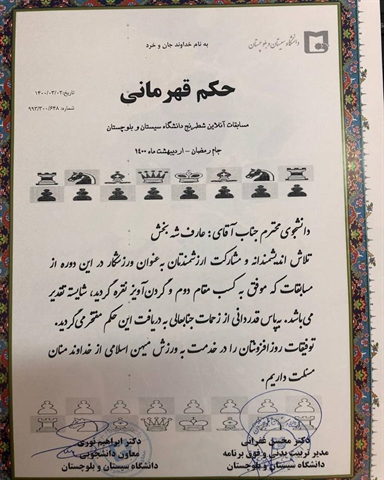 دانشگاه سیستان و بلوچستان
به نام خداوند جان و خرد
تاریخ: ۱۴۰۰/۰۳/۰۲
شماره: ۹۹۳/۳۰۰/۶۴۸
حکم قهرمانی
مسابقات آنلاین شطرنج دانشگاه سیستان و بلوچستان
جام رمضان - اردیبهشت ماه ۱۴۰۰
دانشجوی محترم جناب آقای: عارف شه بخش
تلاش اندیشمندانه و مشارکت ارزشمندتان به‌عنوان ورزشکار در این دوره از
مسابقات که موفق به کسب مقام دوم و گردن‌آویز نقره گردید، شایت تقدیر
می‌باشد. بپاس قدردانی از زحمات جنابعالی به دریافت این حکم مفتخر می‌گردید.
توفیقات روزافزونتان را در خدمت به ورزش میهن اسلامی از خداوند منان
مسئلت داریم.
دکتر محسن غفرانی
مدیر تربیت بدنی و فوق برنامه
دانشگاه سیستان و بلوچستان
دکتر ابراهیم نوری
معاون دانشجویی
دانشگاه سیستان و بلوچستان